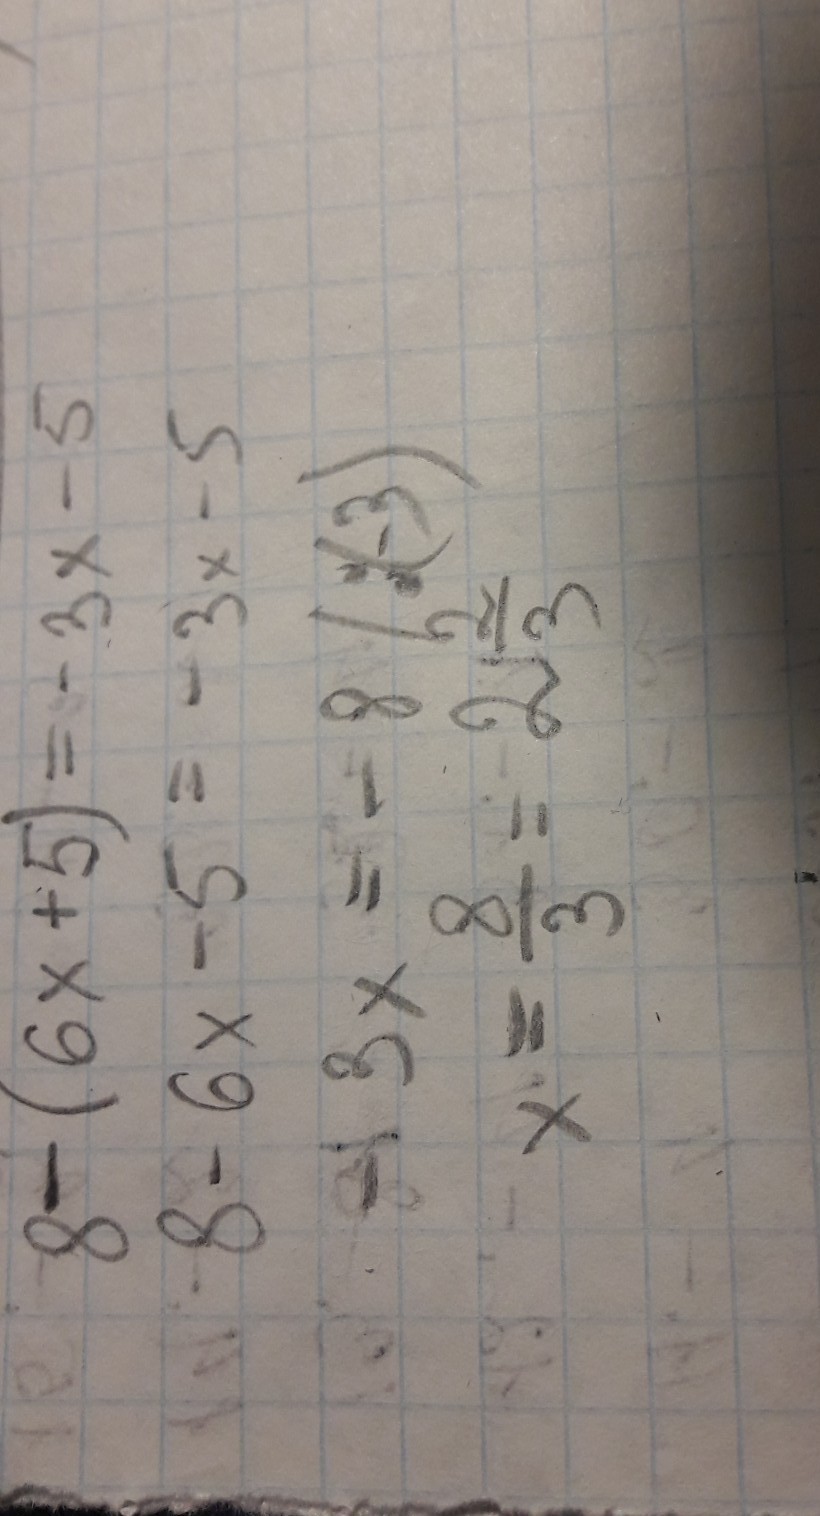 8-(6x+5)=-3x-5
8-6x-5=-3x-5
-3x=-8 | :(-3)
x=8/3=2 2/3